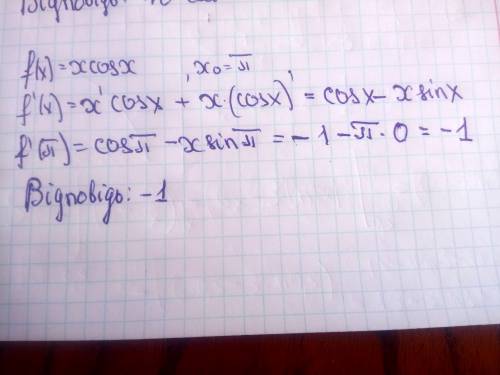 f(x)=xcosx , x₀=π
f'(x)=x'cosx + x·(cosx)' = cosx-xsinx
f'(π)=cosπ-xsinπ=-1-π·0=-1
Відповідь: -1